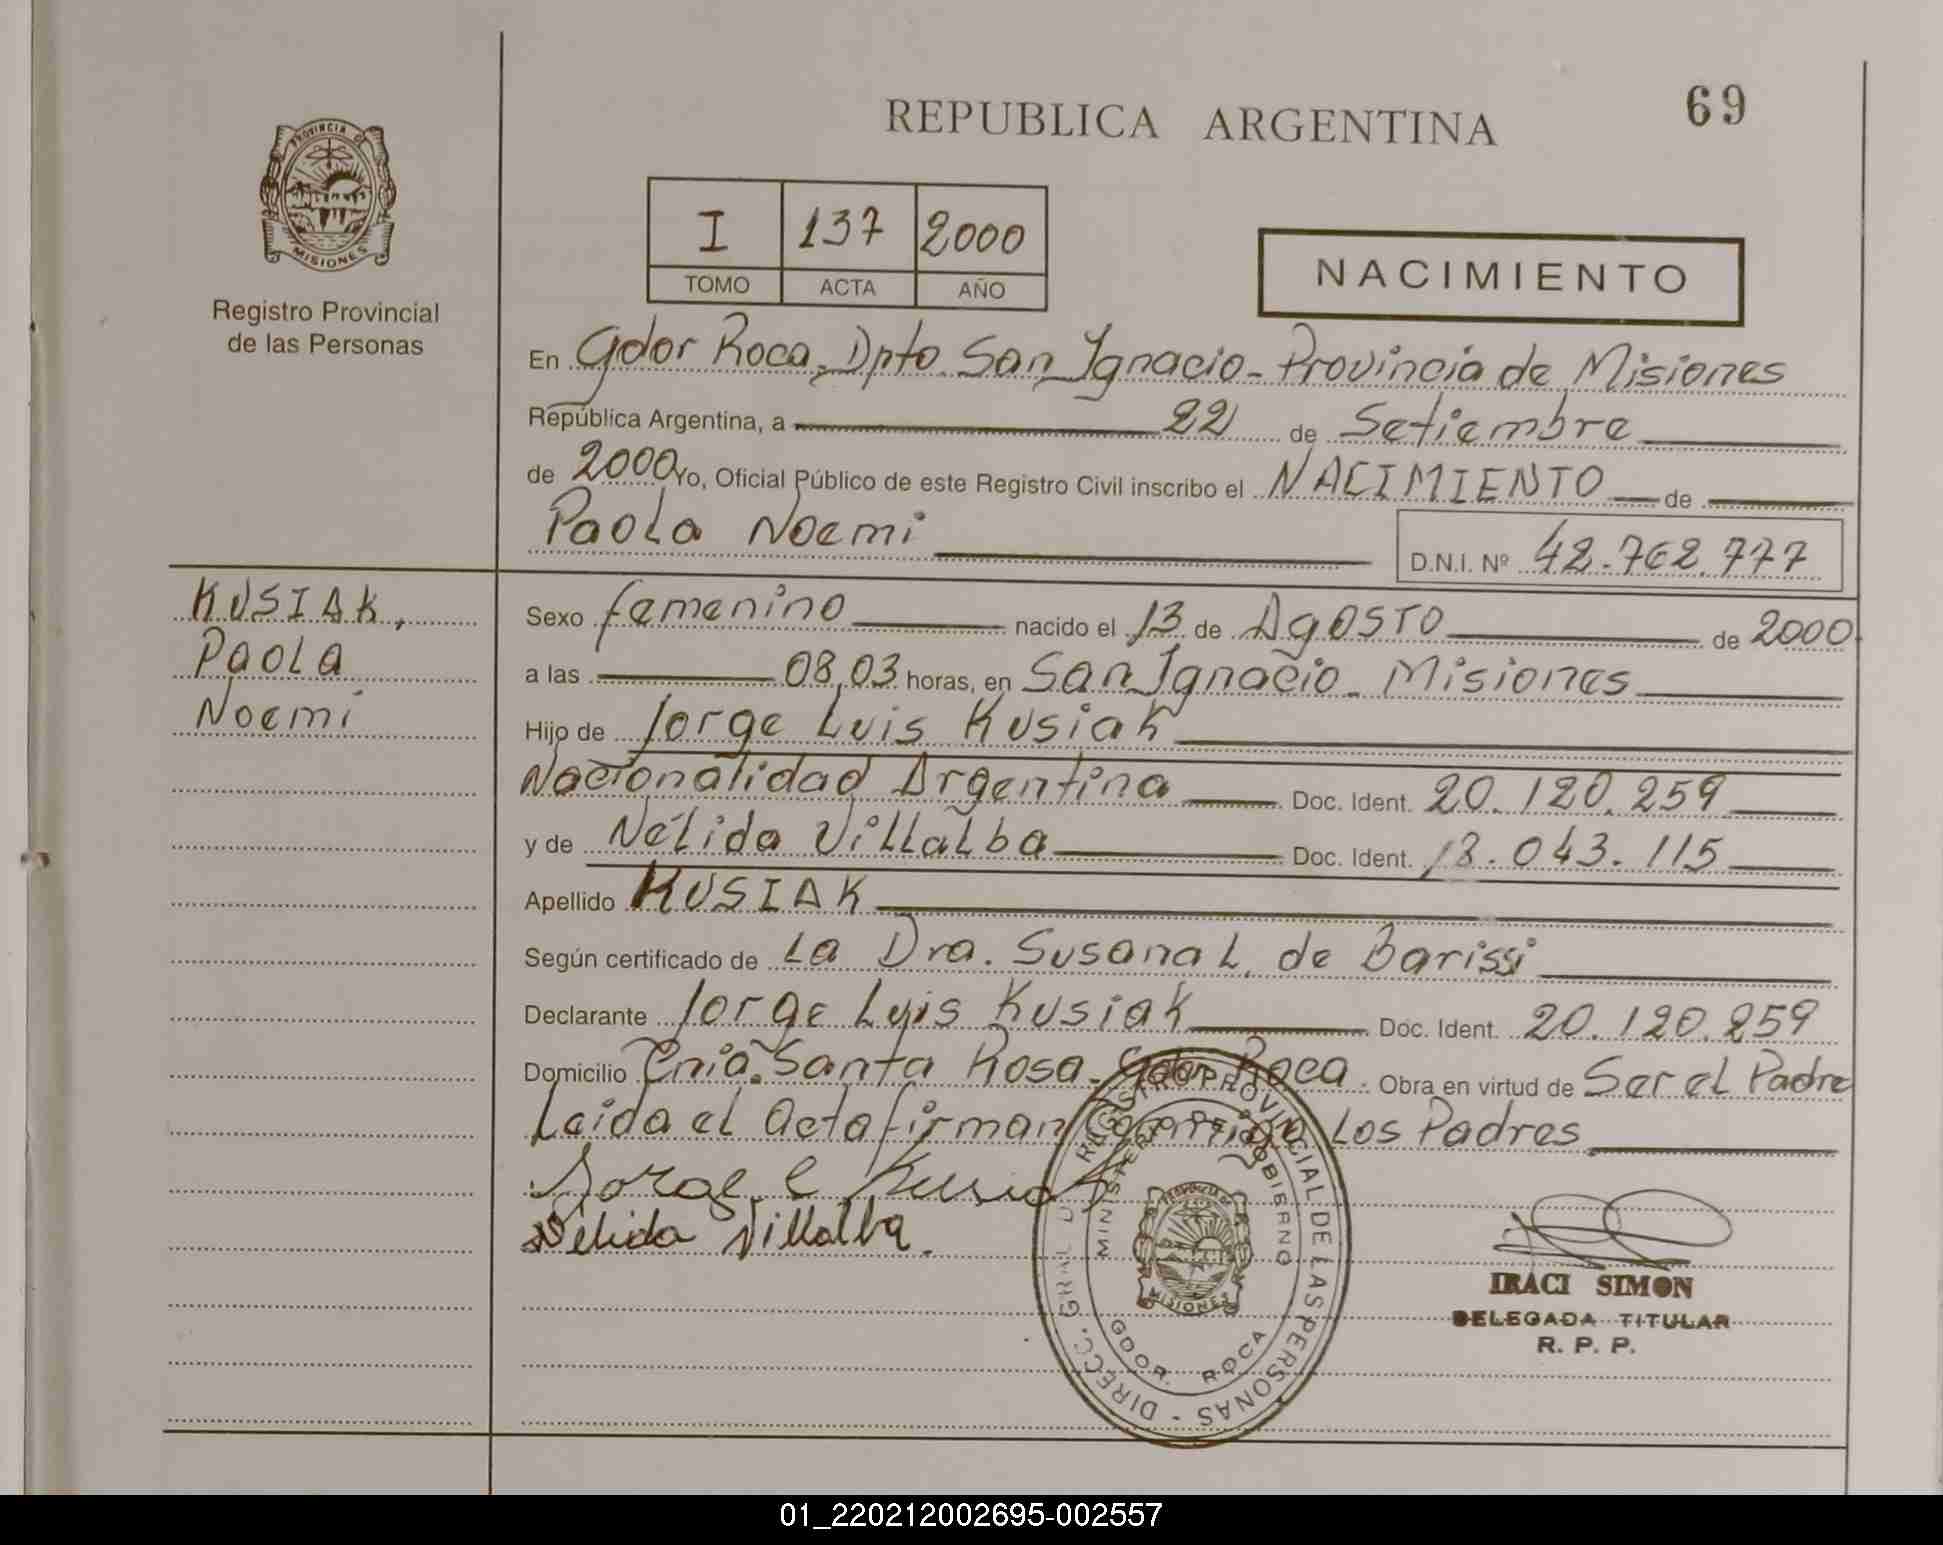 REPUBLICA ARGENTINA
69
PROVINCIA DE
MISIONES
Registro Provincial
de las Personas
I 137 2000
TOMO ACTA AÑO
NACIMIENTO
En Gdor Roca, Dpto. San Ignacio - Provincia de Misiones
República Argentina, a 22 de Setiembre
de 2000 Yo, Oficial Público de este Registro Civil inscribo el NACIMIENTO de
Paola Noemi
D.N.I. Nº 42.762.777
KUSIAK,
Paola
Noemi
Sexo femenino nacido el 13 de Agosto de 2000
a las 08,03 horas, en San Ignacio - Misiones
Hijo de Jorge Luis Kusiak
Nacionalidad Argentina Doc. Ident. 20.120.259
y de Nélida Villalba Doc. Ident. 18.043.115
Apellido KUSIAK
Según certificado de La Dra. Susana L. de Barissi
Declarante Jorge Luis Kusiak Doc. Ident. 20.120.259
Domicilio Cnia. Santa Rosa - Gdor Roca. Obra en virtud de Ser el Padre
Leida el Acta firman Conmigo Los Padres
Jorge L Kusiak
Nélida Villalba.
DIRECC. GRAL DE REGISTRO PROVINCIAL DE LAS PERSONAS -
MINISTERIO DE GOBIERNO
PROVINCIA DE
MISIONES
GDOR. ROCA
IRACI SIMON
DELEGADA TITULAR
R. P. P.
01_220212002695-002557